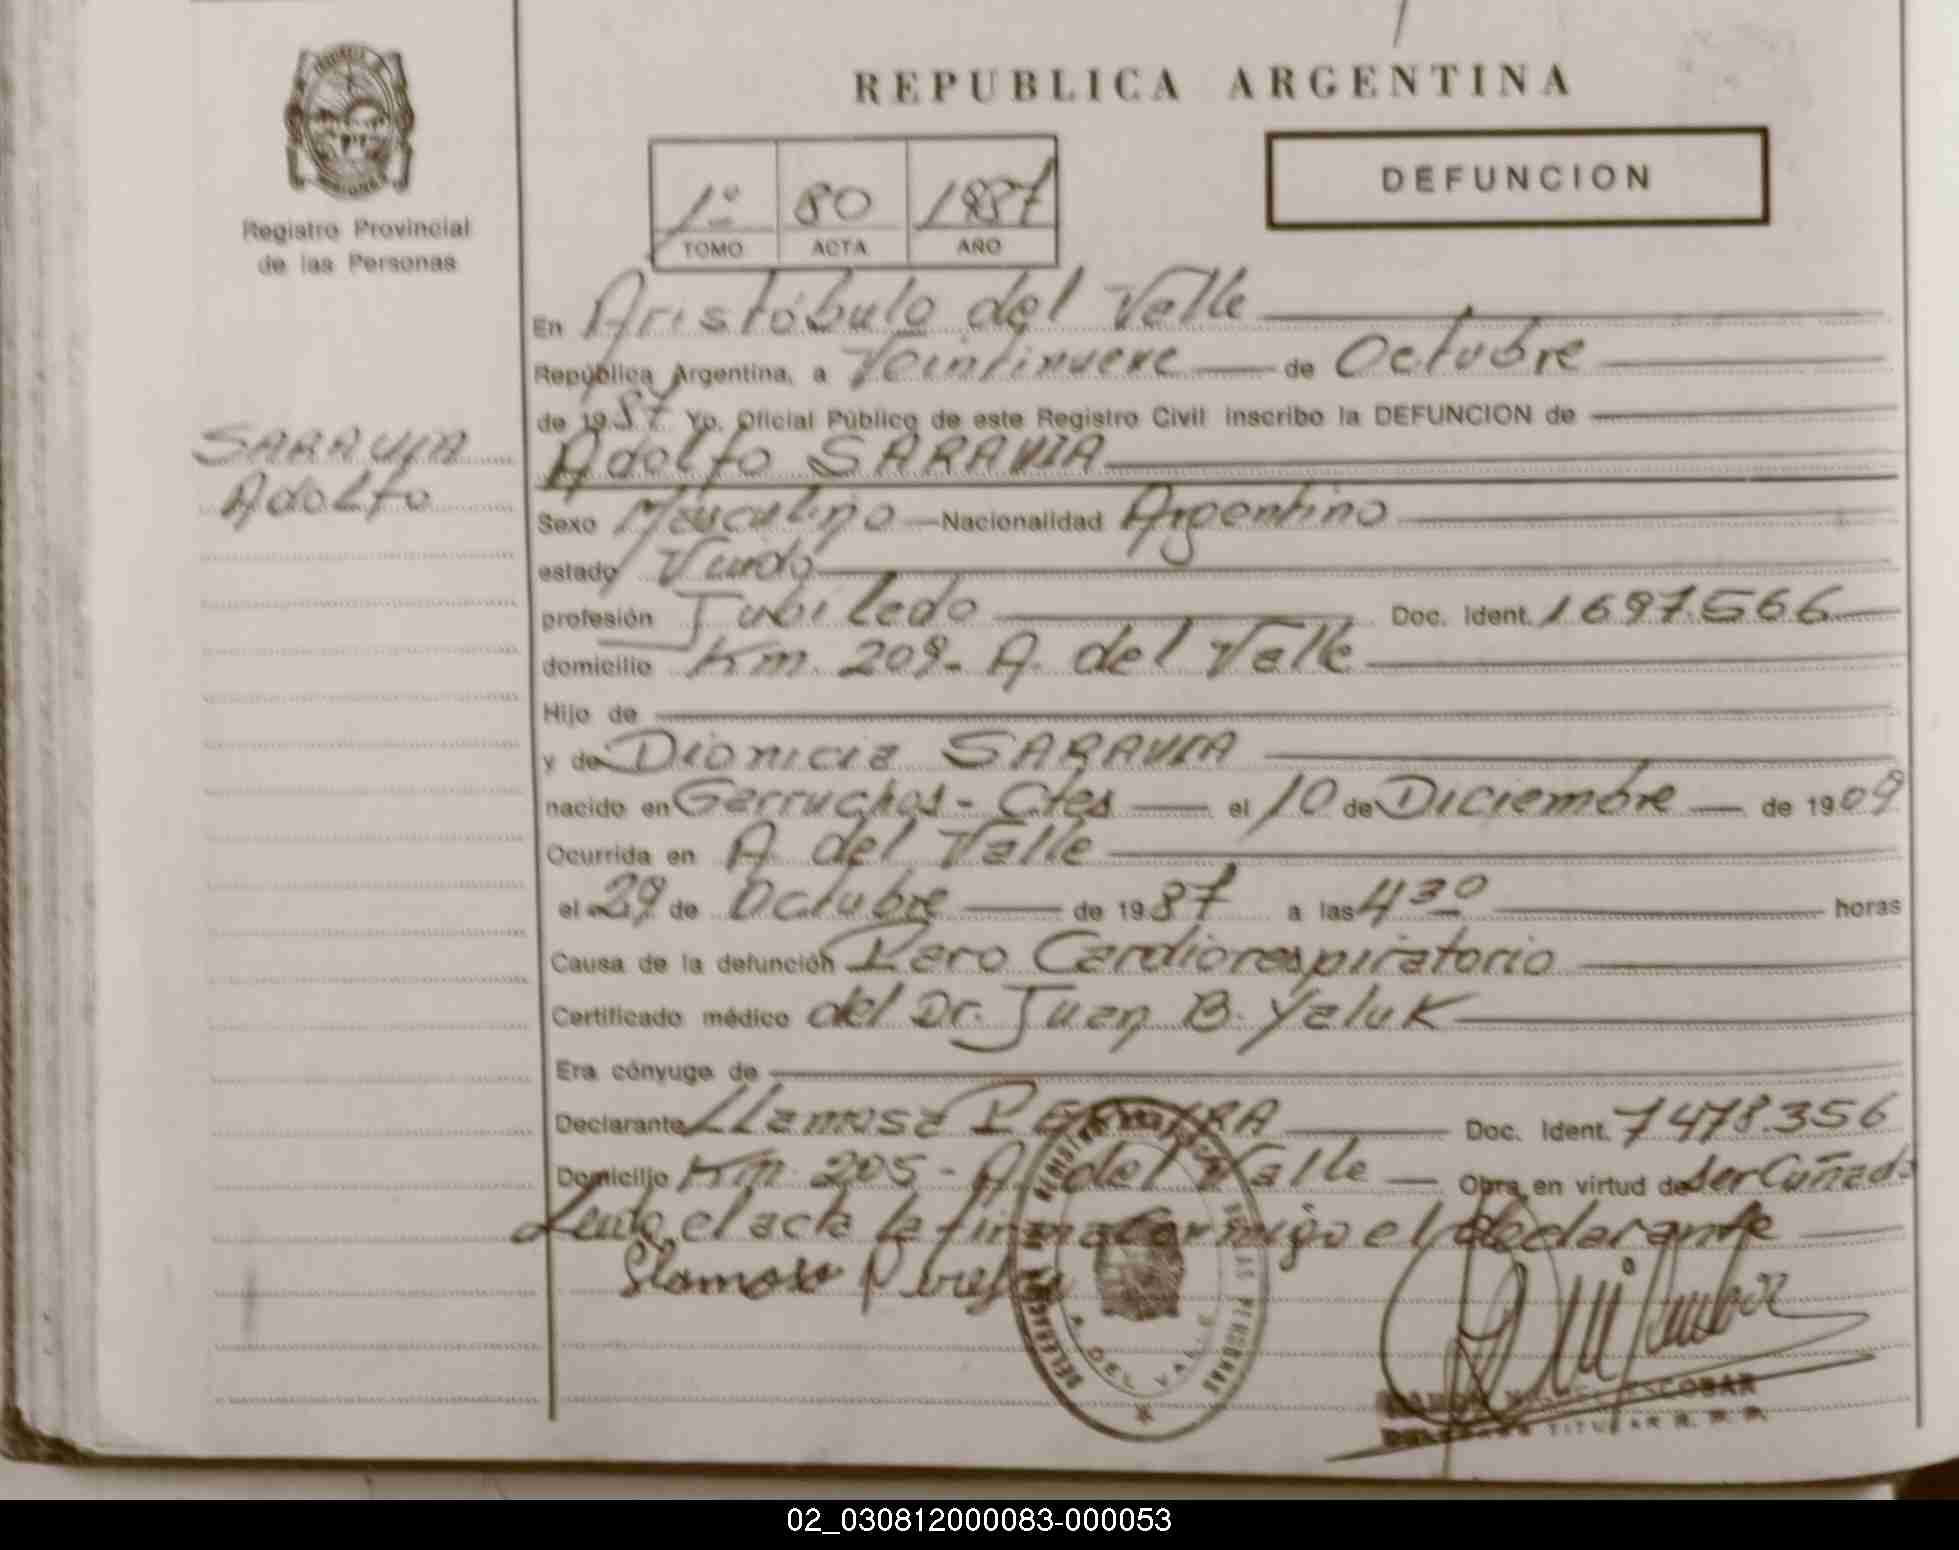 REPUBLICA ARGENTINA
Registro Provincial
de las Personas
1º 80 1987
TOMO ACTA AÑO
DEFUNCION
SARAVIA
Adolfo
En Aristóbulo del Valle
República Argentina, a Veintinueve de Octubre
de 1987 Yo, Oficial Público de este Registro Civil inscribo la DEFUNCION de
Adolfo SARAVIA
Sexo Masculino Nacionalidad Argentino
estado Viudo
profesión Jubilado Doc. Ident. 1697.566
domicilio Km. 209- A. del Valle
Hijo de
y de Dionicia SARAVIA
nacido en Garruchos - Ctes el 10 de Diciembre de 1909
Ocurrida en A. del Valle
el 29 de Octubre de 1987 a las 4 30 horas
Causa de la defunción Paro Cardiorespiratorio
Certificado médico del Dr. Juan B. Yaluk
Era cónyuge de
Declarante Llamosa PEREYRA Doc. Ident. 7478.356
Domicilio Km. 205 - A. del Valle Obra en virtud de ser Cuñado
Leida, el acta la firma conmigo el declarante
A. DEL VALLE
ESCOBAR
TITULAR R. P. P.
02_030812000083-000053